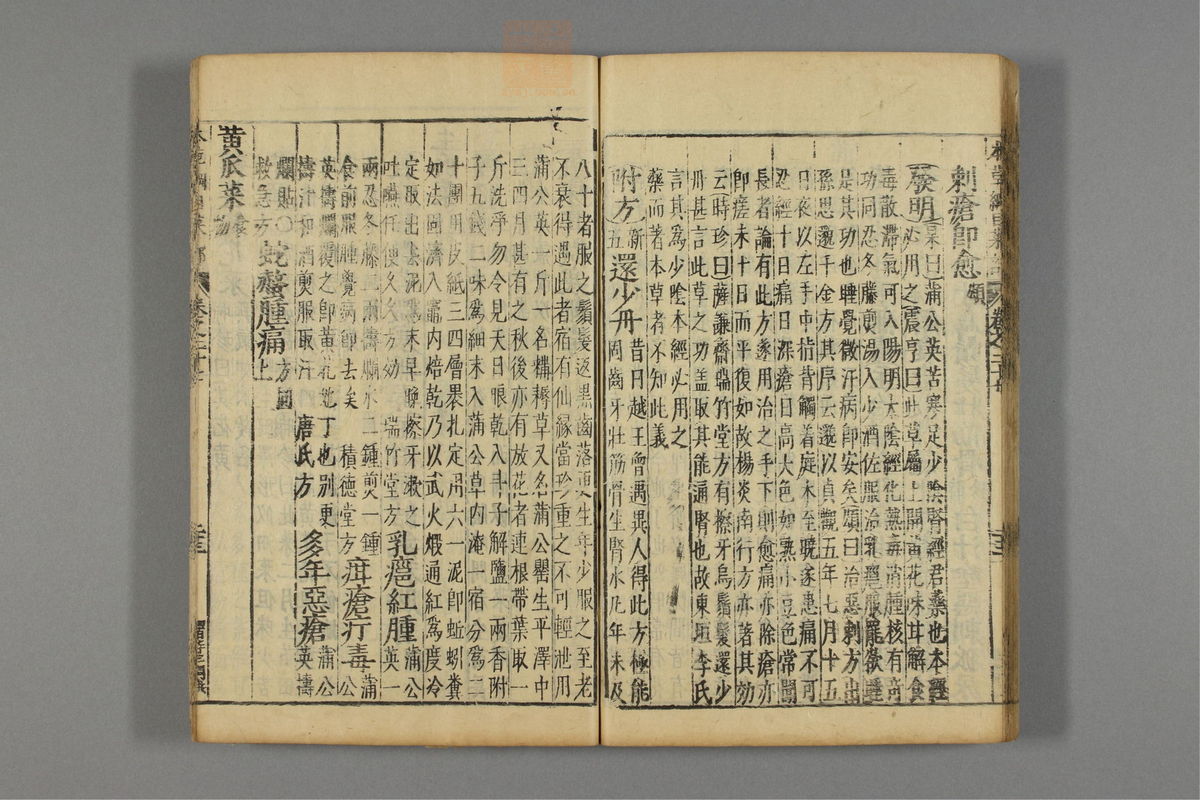 刺瘡即愈頌
發明杲曰蒲公英苦寒足少陰腎經君藥也本經
必用之震亨曰此草屬土開黃花味甘解食
毒散滯氣可入陽明太陰經化熱毒消腫核有奇
功同忍冬藤煎湯入少酒佐服治乳癰服罷欲睡
是其功也睡覺微汗病即安矣頌曰治惡刺方出
孫思邈千金方其序云邈以貞觀五年七月十五
日夜以左手中指背觸着庭木至曉遂患痛不可
忍經十日痛日深瘡日高大色如熟小豆色常聞
長者論有此方遂用治之手下則愈痛亦除瘡亦
即瘥未十日而平復如故楊炎南行方亦著其効
云時珍曰薩謙齋瑞竹堂方有擦牙烏鬚髮還少
丹甚言此草之功蓋取其能通腎也故東垣李氏
言其爲少陰本經必用之
藥而著本草者不知此義
附方新五還少丹昔日越王曾遇異人得此方極能
固齒牙壯筋骨生腎水凡年未及
八十者服之鬚髮返黑齒落更生年少服之至老
不衰得遇此者宿有仙緣當珍重之不可輕泄用
蒲公英一斤一名構耨草又名蒲公罌生平澤中
三四月甚有之秋後亦有放花者連根帶葉取一
斤洗淨勿令見天日晾乾入斗子解鹽一兩香附
子五錢二味爲細末入蒲公草内淹一宿分爲二
十團用皮紙三四層裹扎定用六一泥即蚯蚓糞
如法固濟入竈内焙乾乃以武火煅通紅爲度冷
定取出去泥爲末早晚擦牙漱之
吐嚥任便久久方効 瑞竹堂方乳癰紅腫蒲公
英一
兩忍冬藤二兩擣爛水二鍾煎一鍾
食前服睡覺病即去矣 積德堂方疳瘡疔毒蒲
公
英擣爛覆之即黃花地丁也別更
擣汁和酒煎服取汗 唐氏方多年惡瘡蒲公
英擣
爛貼〇
救急方蛇螫腫痛上方同
黃瓜菜食物